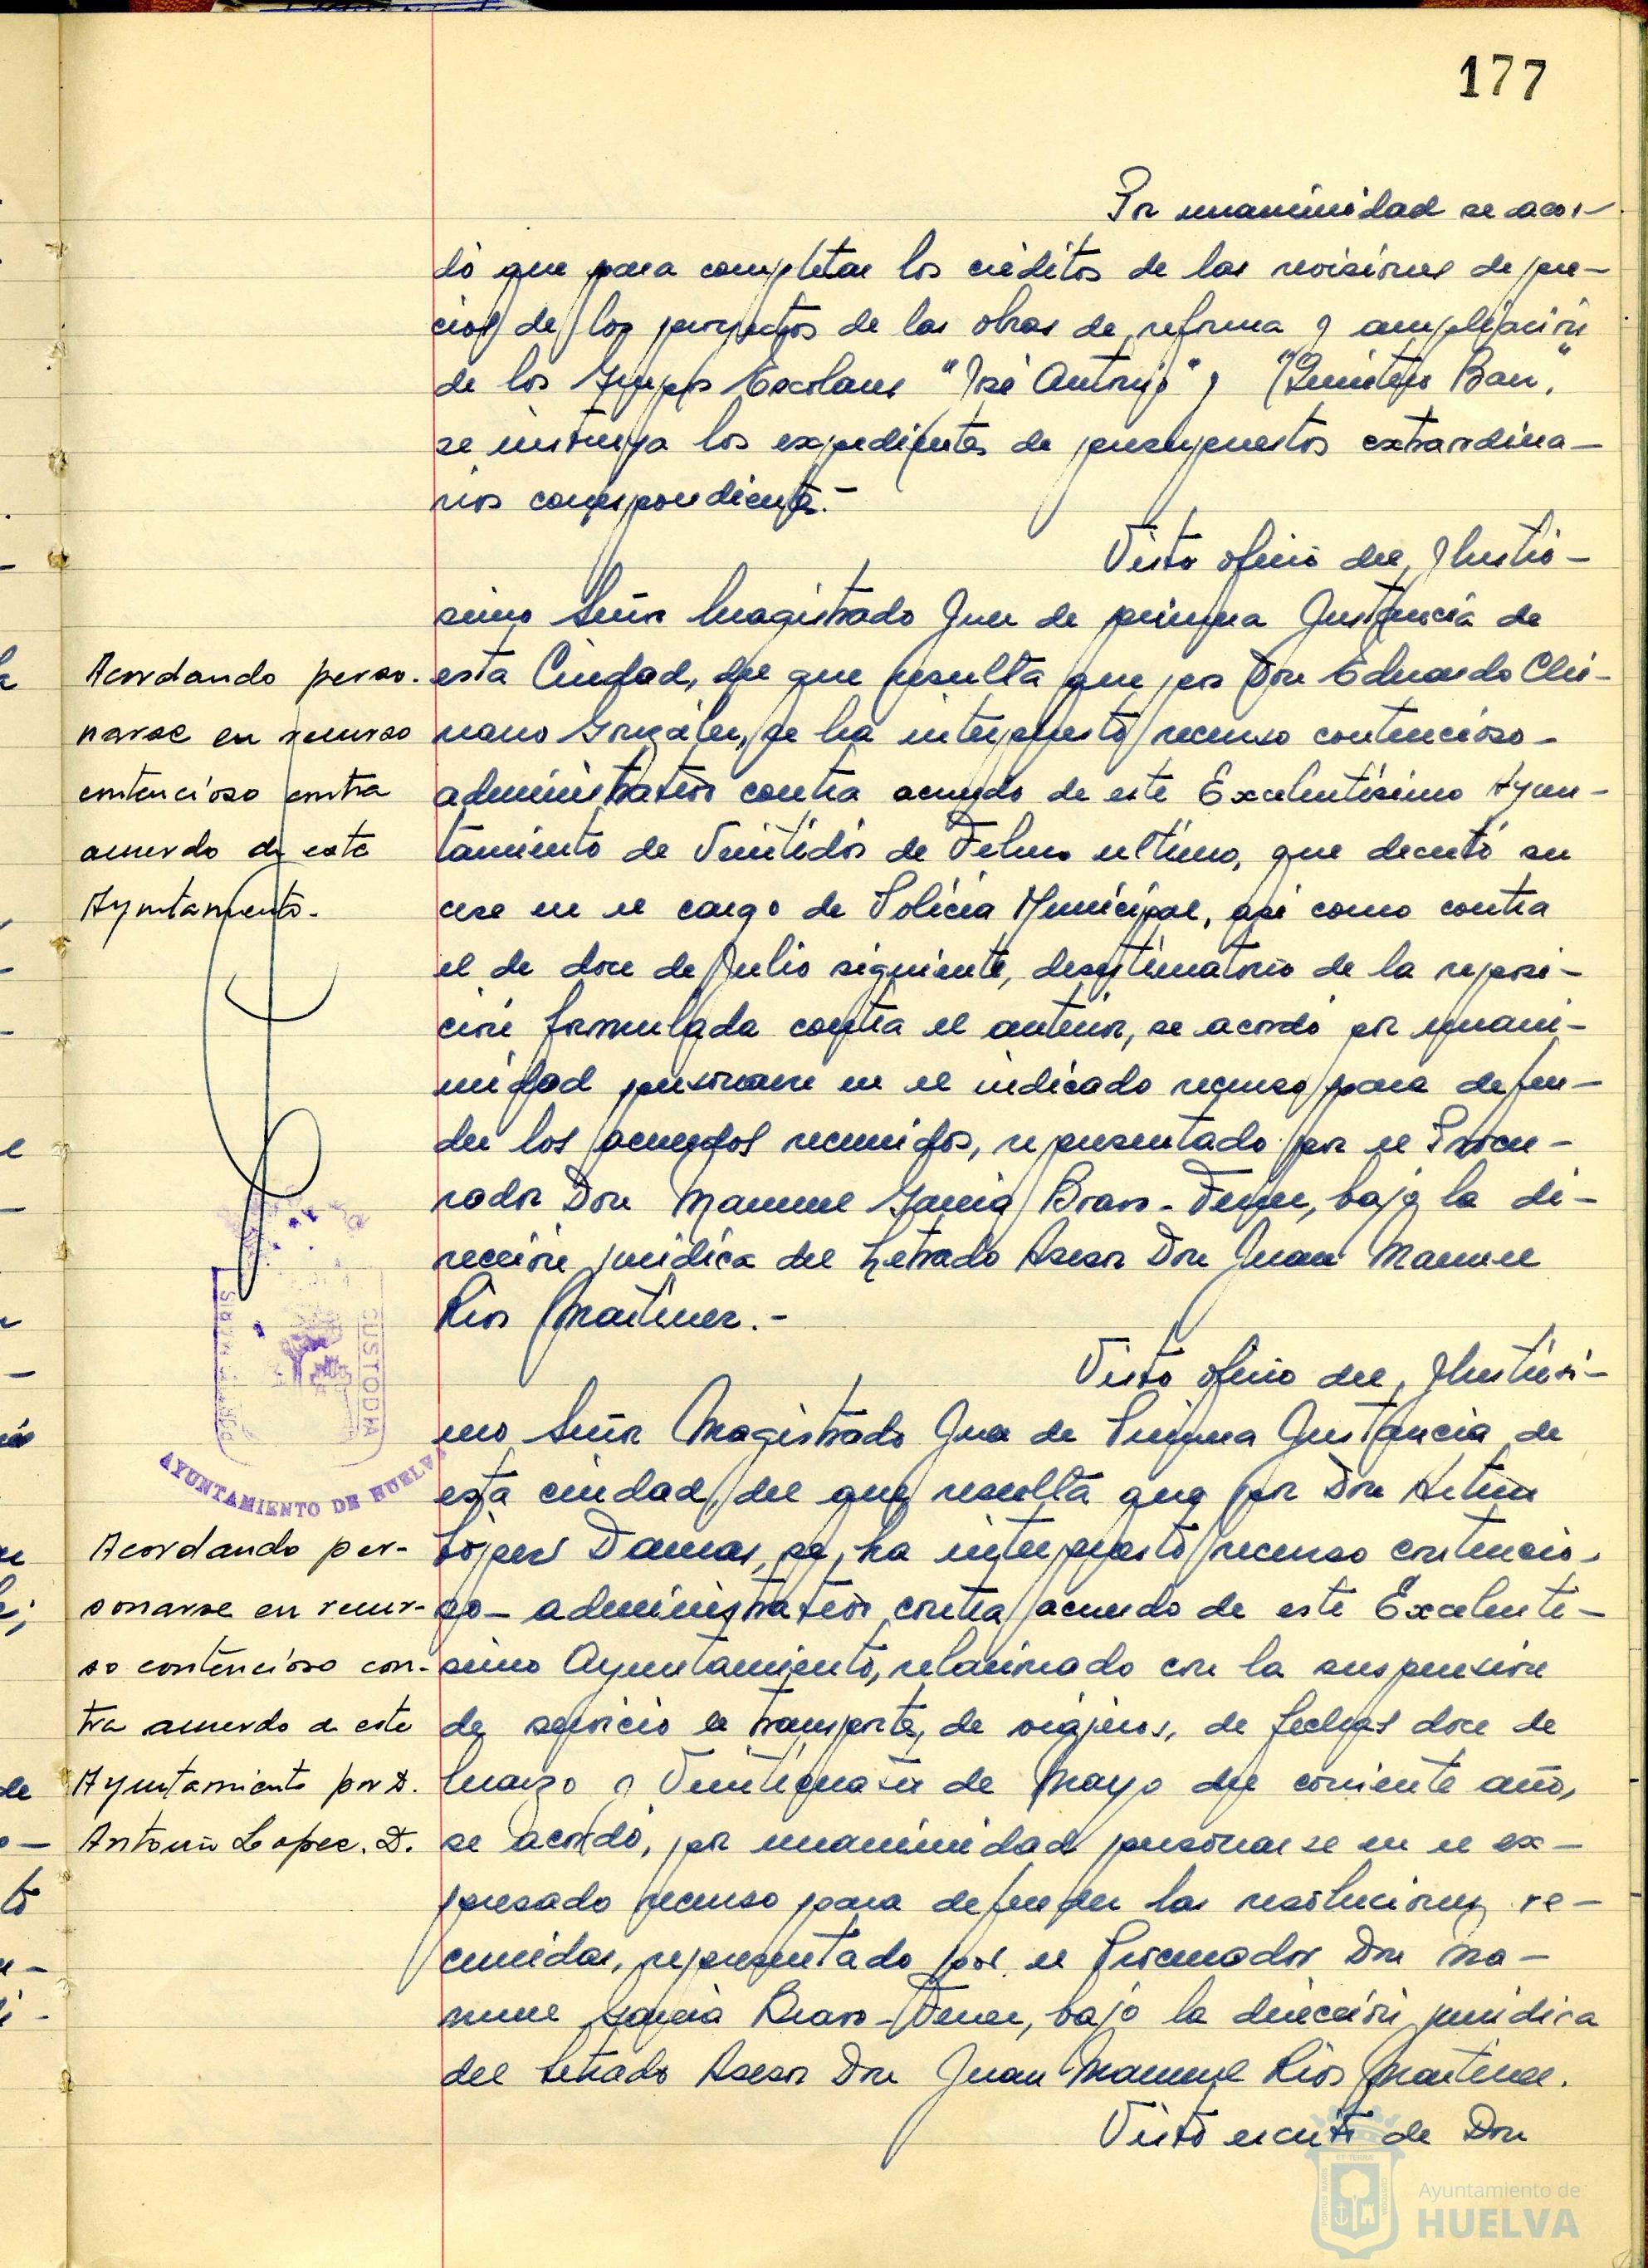 177
Por unanimidad se acor-
dó que para completar los créditos de las revisiones de pre-
cios de los proyectos de las obras de reforma y ampliación
de los Grupos Escolares "José Antonio" y "Quintero Baez",
se instruya los expedientes de presupuestos extraordina-
rios correspondientes.-
Visto oficio del Ilustrí-
simo Señor Magistrado Juez de primera Instancia de
Acordando perso-
narse en recurso
contencioso contra
acuerdo de este
Ayuntamiento.
esta Ciudad, del que resulta que por Don Eduardo Chi-
nano González, se ha interpuesto recurso contencioso-
administrativo contra acuerdo de este Excelentísimo Ayun-
tamiento de Veintidós de Febrero último, que decretó su
cese en el cargo de Policía Municipal, así como contra
el de doce de Julio siguiente, desestimatorio de la reposi-
ción formulada contra el anterior, se acordó por unani-
midad personarse en el indicado recurso para defen-
der los acuerdos recurridos, representado por el Procu-
rador Don Manuel García Bravo-Ferrer, bajo la di-
rección jurídica del Letrado Asesor Don Juan Manuel
Ríos Martínez.-
CUSTODIA
AYUNTAMIENTO DE HUELVA
Visto oficio del Ilustrísi-
mo Señor Magistrado Juez de Primera Instancia de
esta ciudad, del que resulta que por Don Arturo
Acordando per-
sonarse en recur-
so contencioso con-
tra acuerdo de este
Ayuntamiento por D.
Antonio Lopez. D.
López Damas, se ha interpuesto recurso contencio-
so-administrativo contra acuerdo de este Excelentí-
simo Ayuntamiento, relacionado con la suspensión
de servicio de transporte, de viajeros, de fechas doce de
Marzo y Veinticuatro de Mayo del corriente año,
se acordó, por unanimidad personarse en el ex-
presado recurso para defender las resoluciones re-
curridas, representado por el Procurador Don Ma-
nuel García Bravo-Ferrer, bajo la dirección jurídica
del Letrado Asesor Don Juan Manuel Ríos Martínez.
Visto escrito de Don
Ayuntamiento de
HUELVA